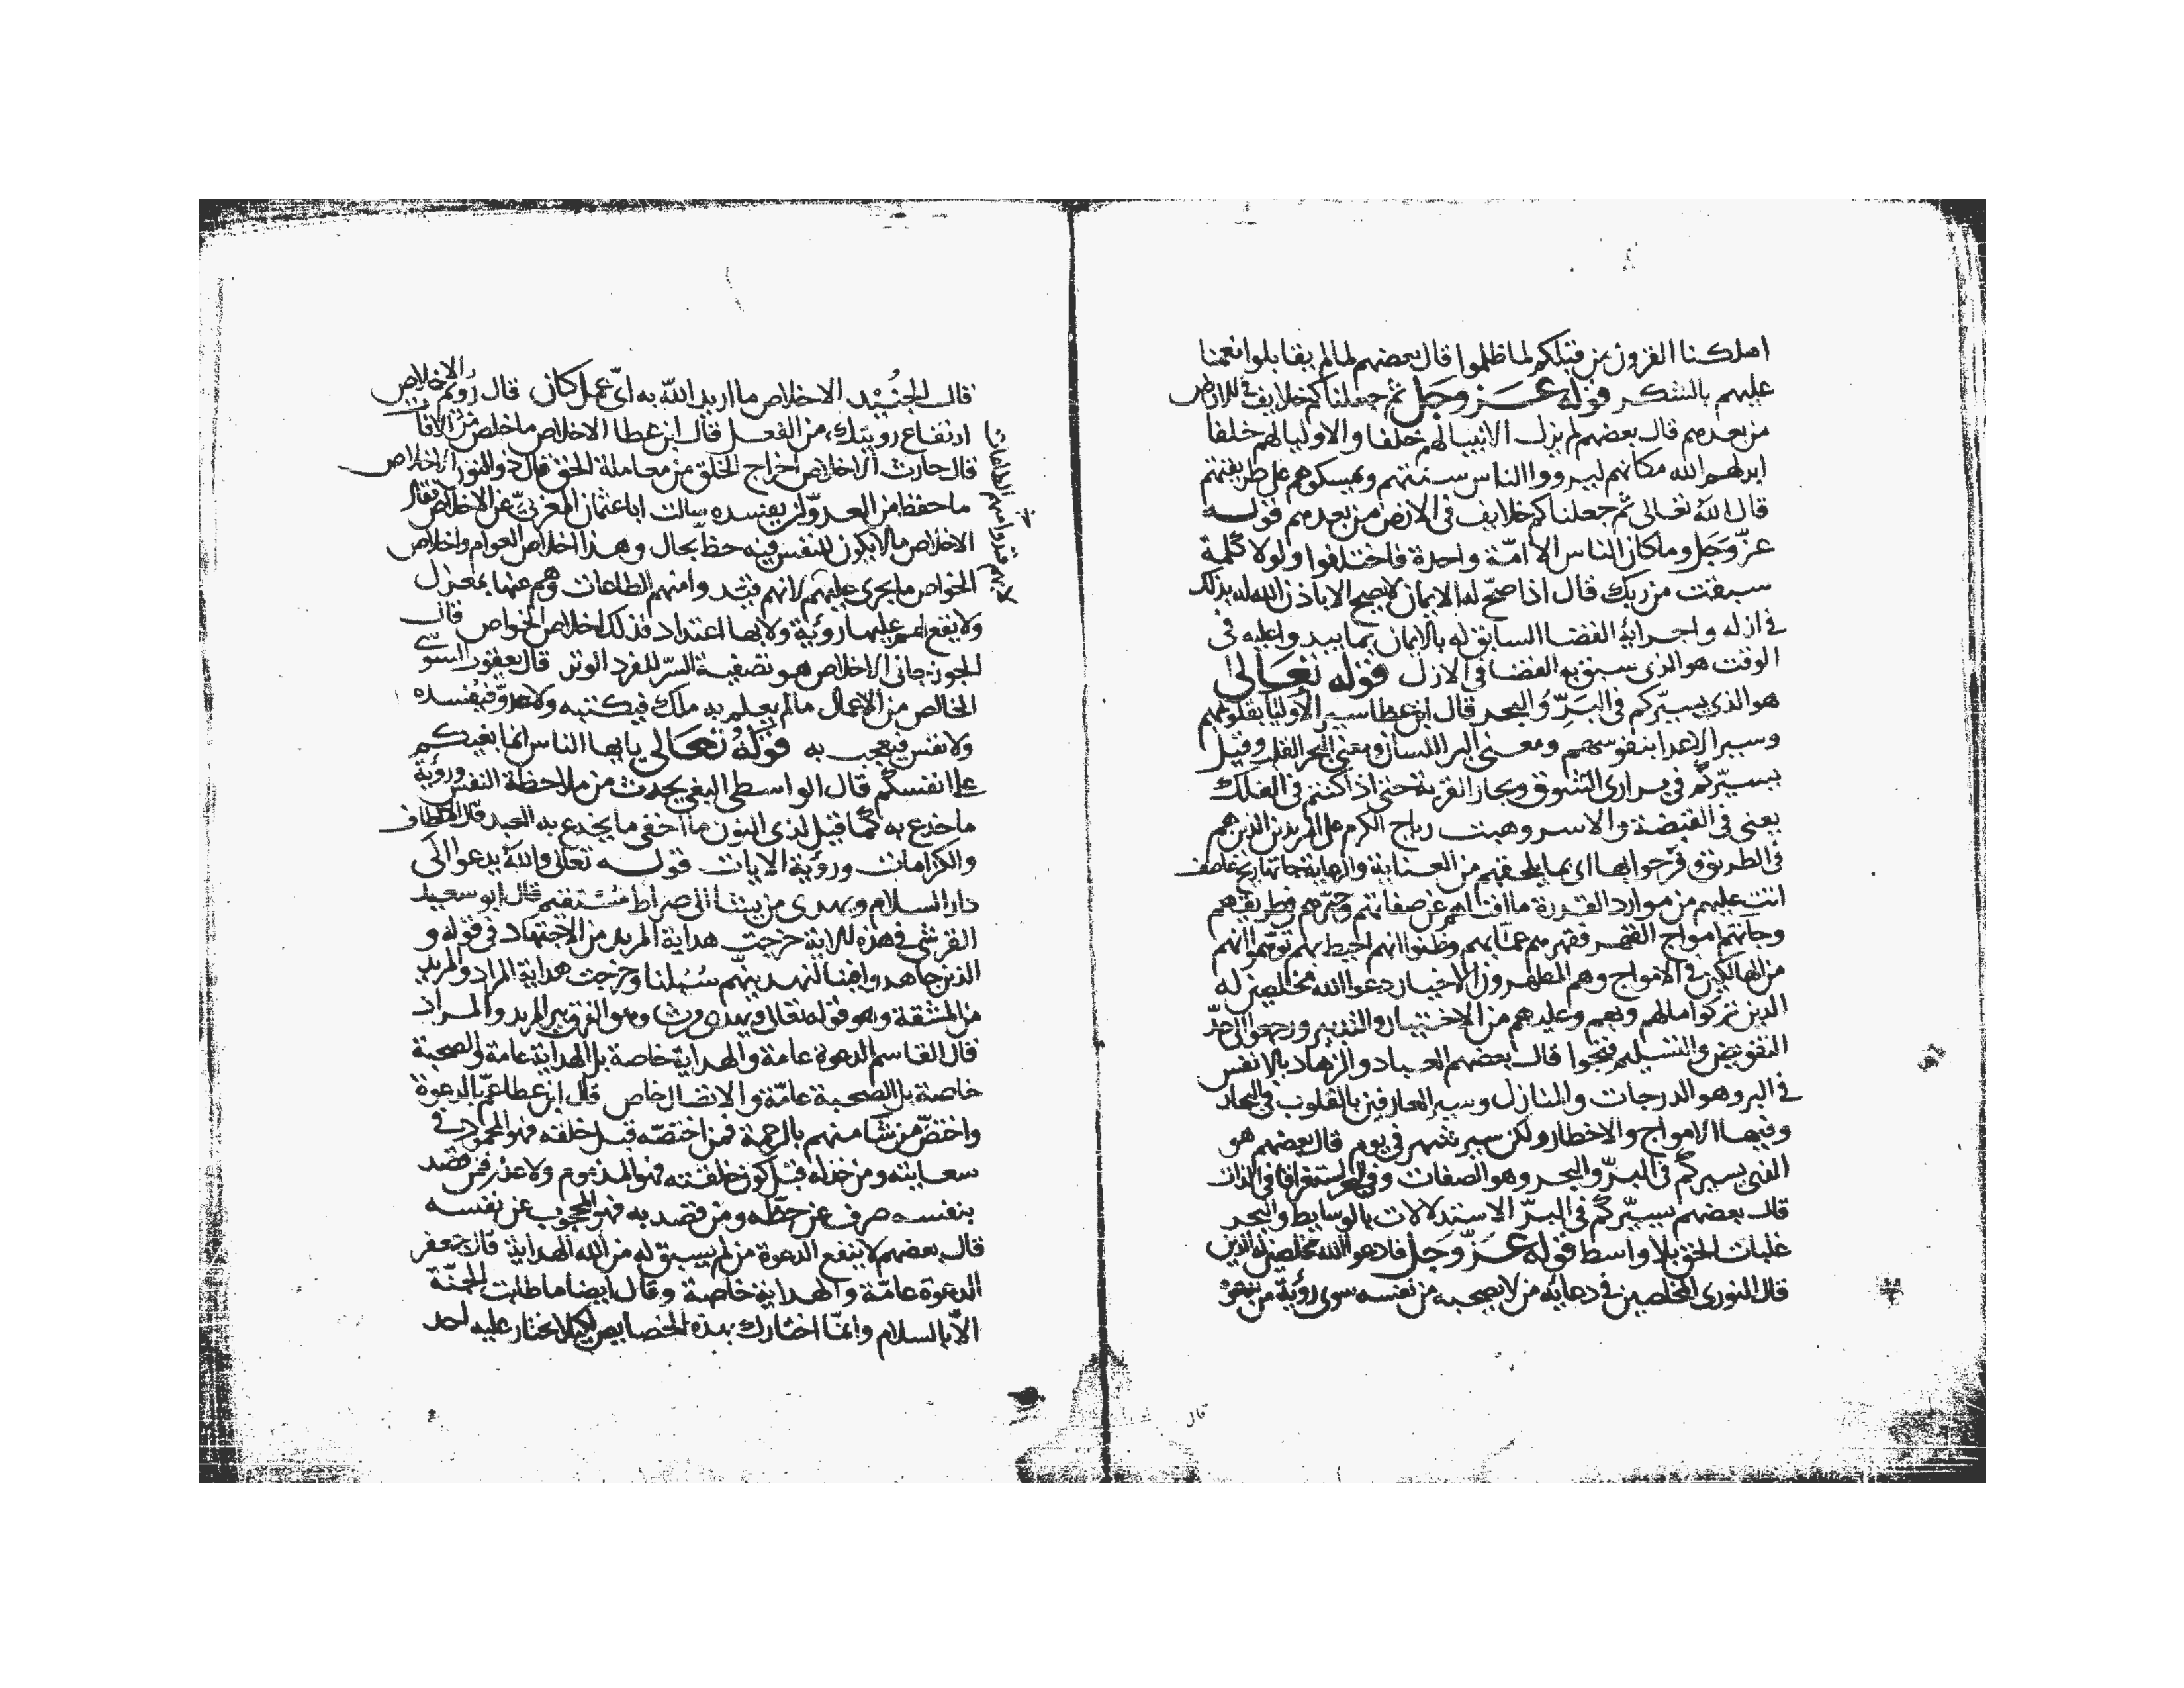 اهلكنا القرون من قبلكم لما ظلموا قال بعضهم لما لم يقابلوا نعمنا
عليهم بالشكر قوله عز وجل ثم جعلناكم خلايف في الارض
من بعدهم قال بعضهم لم يزل الانبيا لهم خلفا والاوليا لهم خلفا
الله مكانهم ليروا الناس سنتهم ويمسكوهم على طريقتهم
قال الله تعالى ثم جعلناكم خلايف في الارض من بعدهم قوله
عزّ وجل وما كان الناس الا امّة واحدة فاختلفوا ولولا كلمة
سبقت من ربك قال اذا صحّ له الايمان لا يصح الا باذن الله له بذلك
في ازله واجراية القضا السابق له بالايمان بما يبدوا عليه في
الوقت هو الذي سبق به القضا في الازل قوله تعالى
هو الذي يسيّركم في البَرِّ والبحر قال ابن عطا سير الاوليا بقلوبهم
وسير الاعدا بنفوسهم ومعنى البر اللسان ومعنى البحر القلب وقيل
يسيّركم في براري الشوق وبحار القربة حتى اذا كنتم في الفلك
يعني في القبضة والاسر وهبت رياح الكرم على المريدين الذين هم
في الطريق وفرحوا بها اي بما يلحقهم من العناية والرعاية جاتها ريح عاصف
اتت عليهم من موارد القدرة ما افناهم عن صفاتهم وحيّرهم في طريقهم
وجاتهم امواج القهر فقهرهم عمّا بهم وظنوا انهم احيط بهم توهّموا انهم
من الهالكين في الامواج وهم المطهرون الاخيار دعوا الله مخلصين له
الدين تركوا ما لهم وبهم وعليهم من الاختيار والتدبير ورجعوا الى حدّ
التفويض والتسليم فنجوا قال بعضهم العباد والزهاد بالانفس
في البر وهو الدرجات والمنازل وسير العارفين بالقلوب في البحار
وفيها الامواج والاخطار ولكن سير شهر في يوم قال بعضهم هو
الذي يسيركم في البرّ والبحر وهو الصفات وفي البحر استغراقا في الذات
قال بعضهم يسيّركم في البرّ الاستدلالات بالوسايط والبحر
غلبات الحق بلا واسط قوله عَزّ وجَل فادعوا الله مخلصين له الدين
قال النوري المخلصين في دعايه من لا يصحبه من نفسه سوى رؤية من يدعوه
قال
قال الجُنَيْد الاخلاص ما اريد الله به ايّ عمل كان قال رُويم الاخلاص
ارتفاع رويتك من الفعل قال ابن عطا الاخلاص ما خلص من الافات
قال حارث الاخلاص اخراج الخلق من معاملة الحق قال ذو النون الاخلاص
ما حفظ من العدوّ ان يفسده سالت ابا عثمان المغربيّ عن الاخلاص فقال
الاخلاص ما لا يكون للنفس فيه حظ بحال وهذا اخلاص العوام واخلاص
الخواص ما يجري عليهم لانهم منهم الطاعات وهم عنها بمعزل
ولا يقع لهم عليها رؤية ولا بها اعتداد فذلك اخلاص الخواص قال
الجوزجاني الاخلاص هو تصفية السرّ للفرد الوتر قال يعقوب السوسي
الخالص من الاعمال ما لم يعلم به ملك فيكتبه ولا عدوّ فيفسده
ولا نفس فيعجب به قوله تعالى يا يها الناس انما بغيكم
على انفسكم قال الواسطي البغي يحدث من ملاحظة النفس ورؤية
ما خدع به كما قيل لذي النون ما اخفى ما يخدع به العبد قال الالطاف
والكرامات ورؤية الايات قوله تعالى والله يدعوا الى
دار السلام ويهدي من يشا الى صراط مُستقيم قال ابو سعيد
القرشي في هذه الاية خرجت هداية المريد من الاجتهاد في قوله و
الذين جاهدوا فينا لنهدينّهم سُبلنا وخرجت هداية المراد والمريد
من المشقة وهو قوله تعالى ويهدي من يشا وهو الفرق بين المريد والمراد
قال القاسم الدعوة عامة والهداية خاصة بل الهداية عامة والصحبة
خاصة بل الصحبة عامّة والاتصال خاص قال ابن عطا عمّ بالدعوة
واختصّ من شا منهم بالرحمة فمن اختصّه قبل خلقه فهو المحمود في
سعايته ومن خذله قبل كون خلقته فهو المذموم ولا عذر فمن قصد
بنفسه صرف عن حظّه ومن قصد به فهو المحجوب عن نفسه
قال بعضهم لا ينفع الدعوة من لم يسبق له من الله الهداية قال جعفر
الدعوة عامّة والهداية خاصة وقال ايضا ما طابت الجنّة
الّا بالسلام وانمّا اختارك بهذه الخصايص لكيلا تختار عليه احد